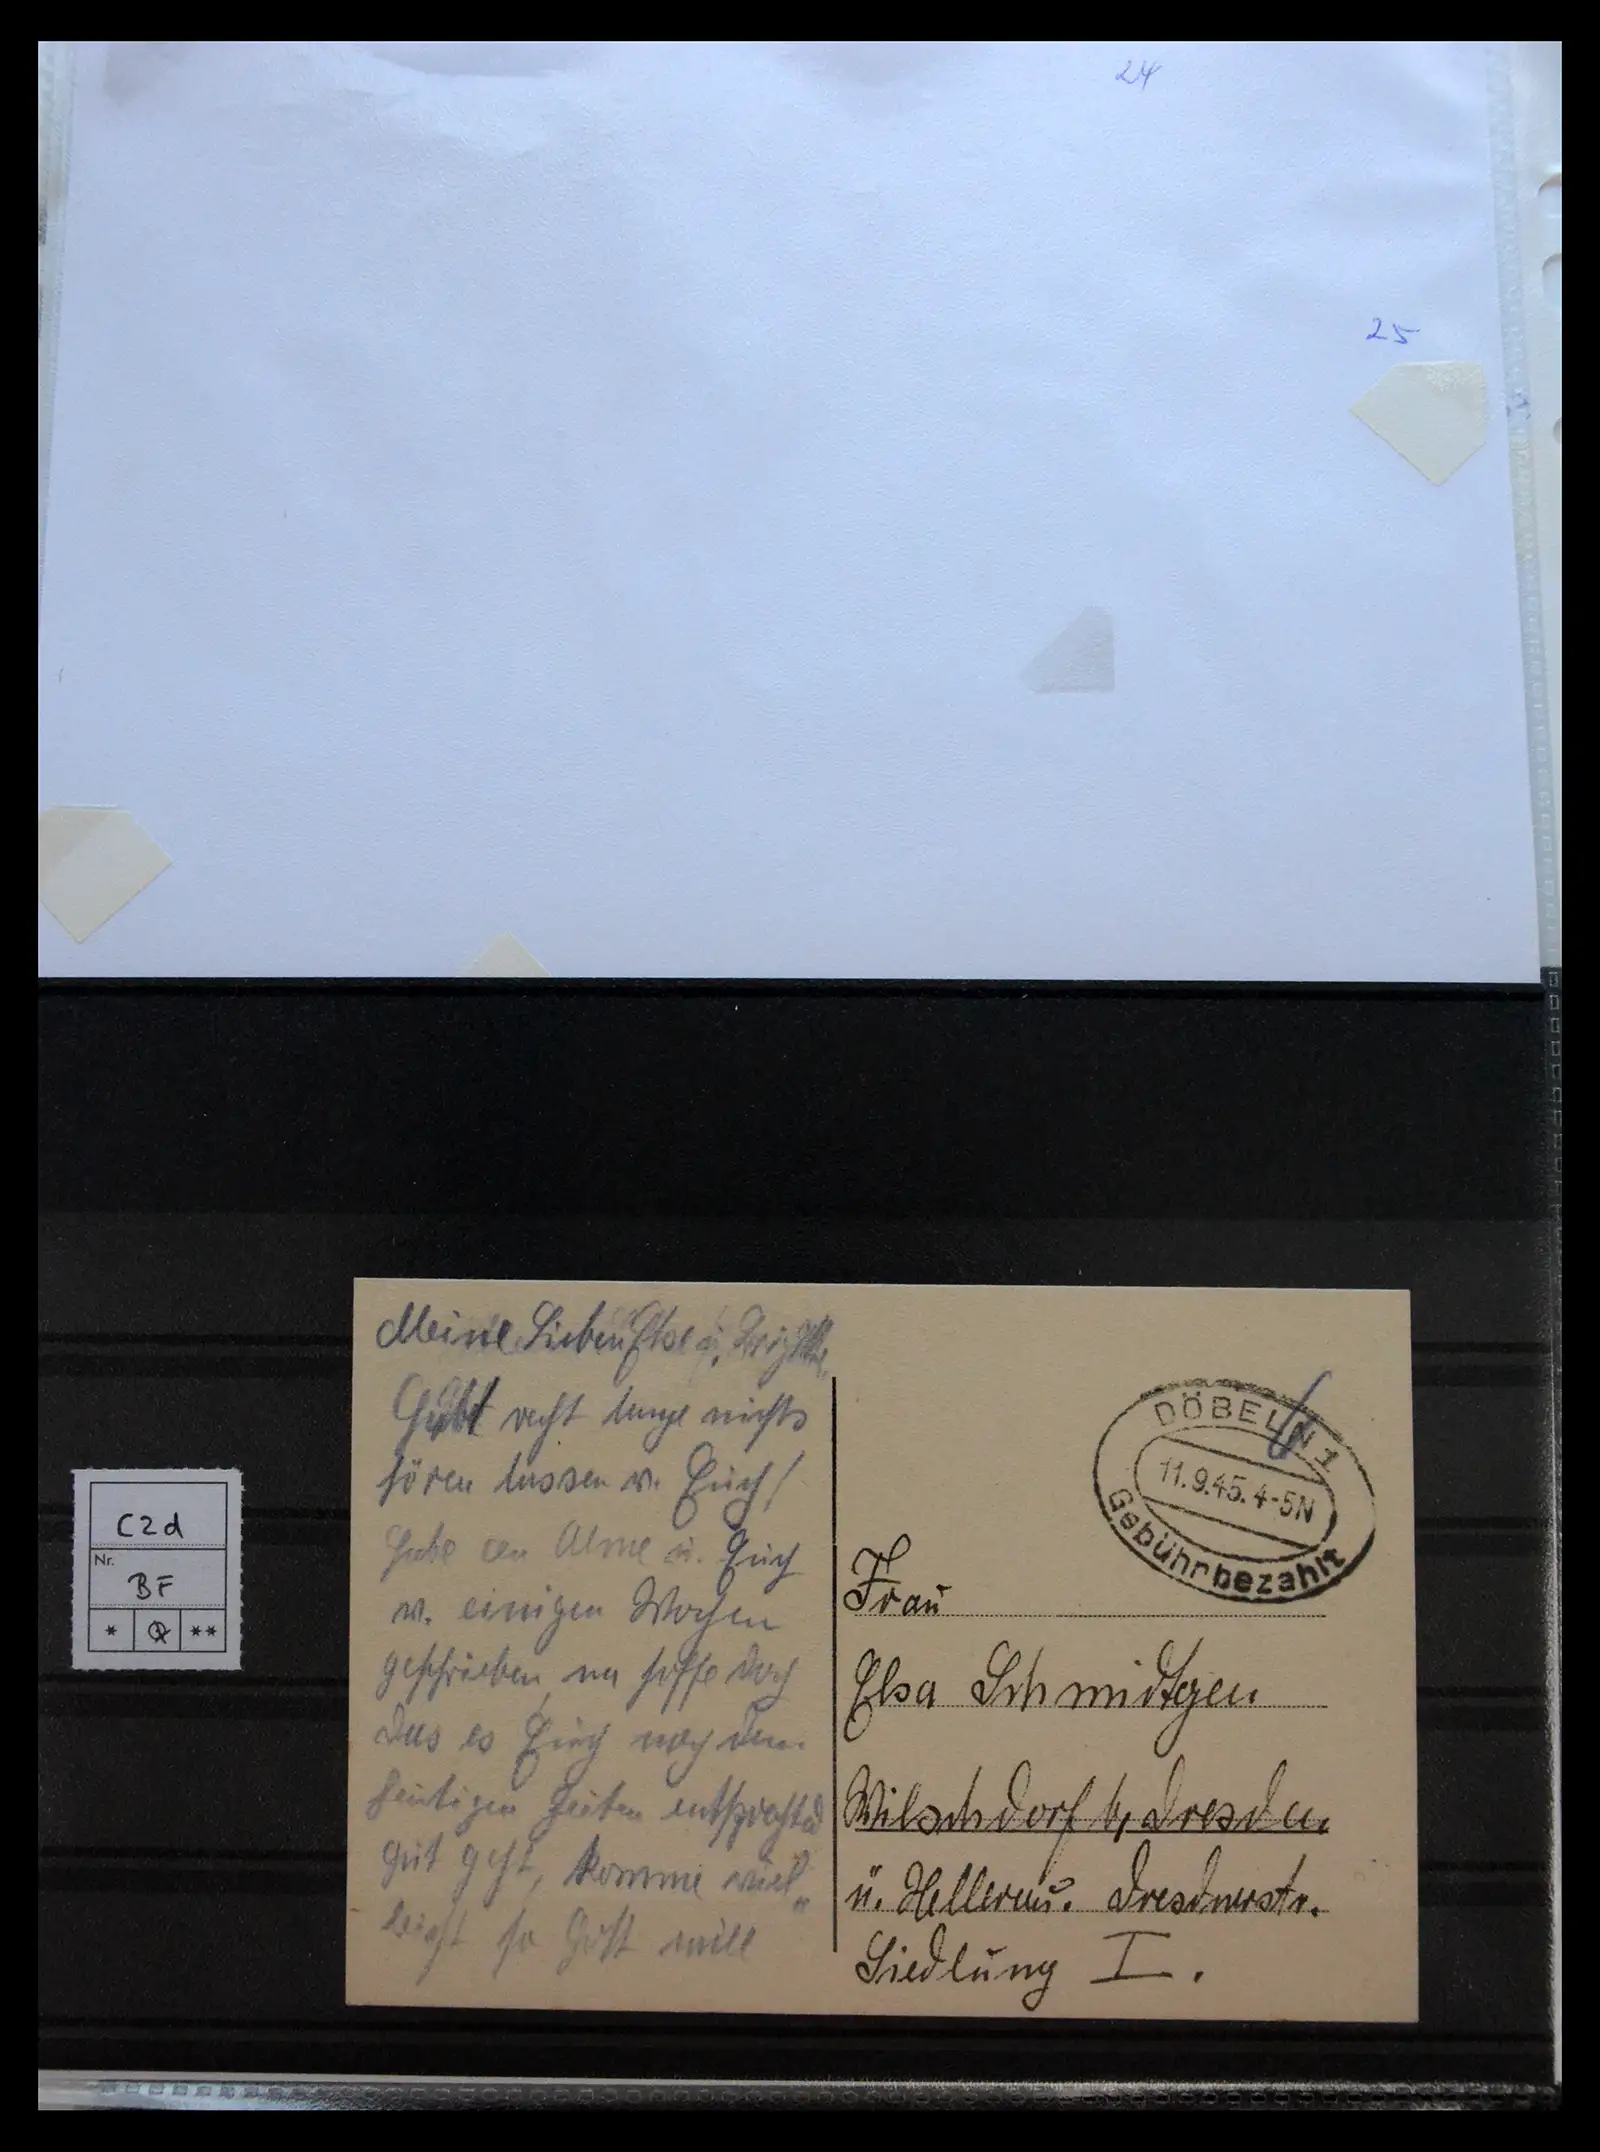 24
25
C2d
Nr.
BF
* **
Meine Lieben Else u. Brigitte,
Habt recht lange nichts
hören lassen v. Euch!
Habe an Alme u. Euch
v. einigen Wochen
geschrieben, nu hoffe doch
das es Euch noch den
heutigen Zeiten entsprechend
gut geht, komme viel„
leicht so Gott will
DÖBELN 1
11.9.45. 4-5N
Gebühr bezahlt
Frau
Elsa Schmidtgen
Wilschdorf b, Dresden
ü. Hellerau. Dresdnerstr.
Siedlung I.